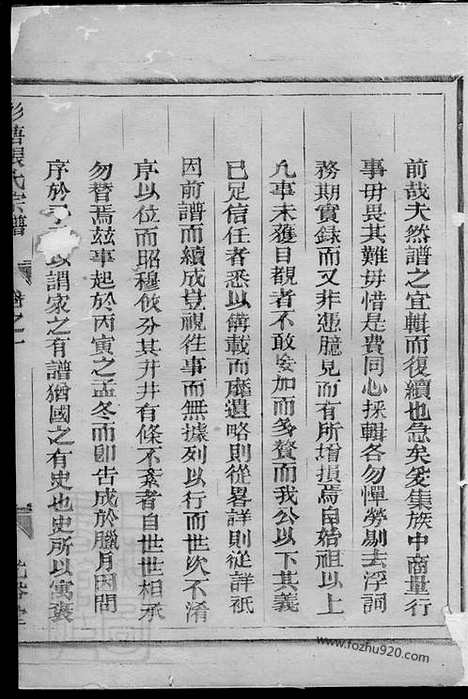 前哉夫然譜之宜輯而復續也急矣爰集族中商量行
事毋畏其難毋惜是費同心採輯各勿憚勞剔去浮詞
務期實錄而又非憑臆見而有所增損焉自始祖以上
凡事未獲目觀者不敢妄加而多贅而我公以下其義
已足信任者悉以備載而靡遺略則從畧詳則從詳祇
因前譜而續成豈視往事而無據列以行而世次不淆
序以位而昭穆攸分其井井有條不紊者自世世相承
勿替焉茲事起於丙寅之孟冬而即告成於臘月因問
序於予 以謂家之有譜猶國之有史也史所以寓褒
張氏宗譜
www.fozhu920.com